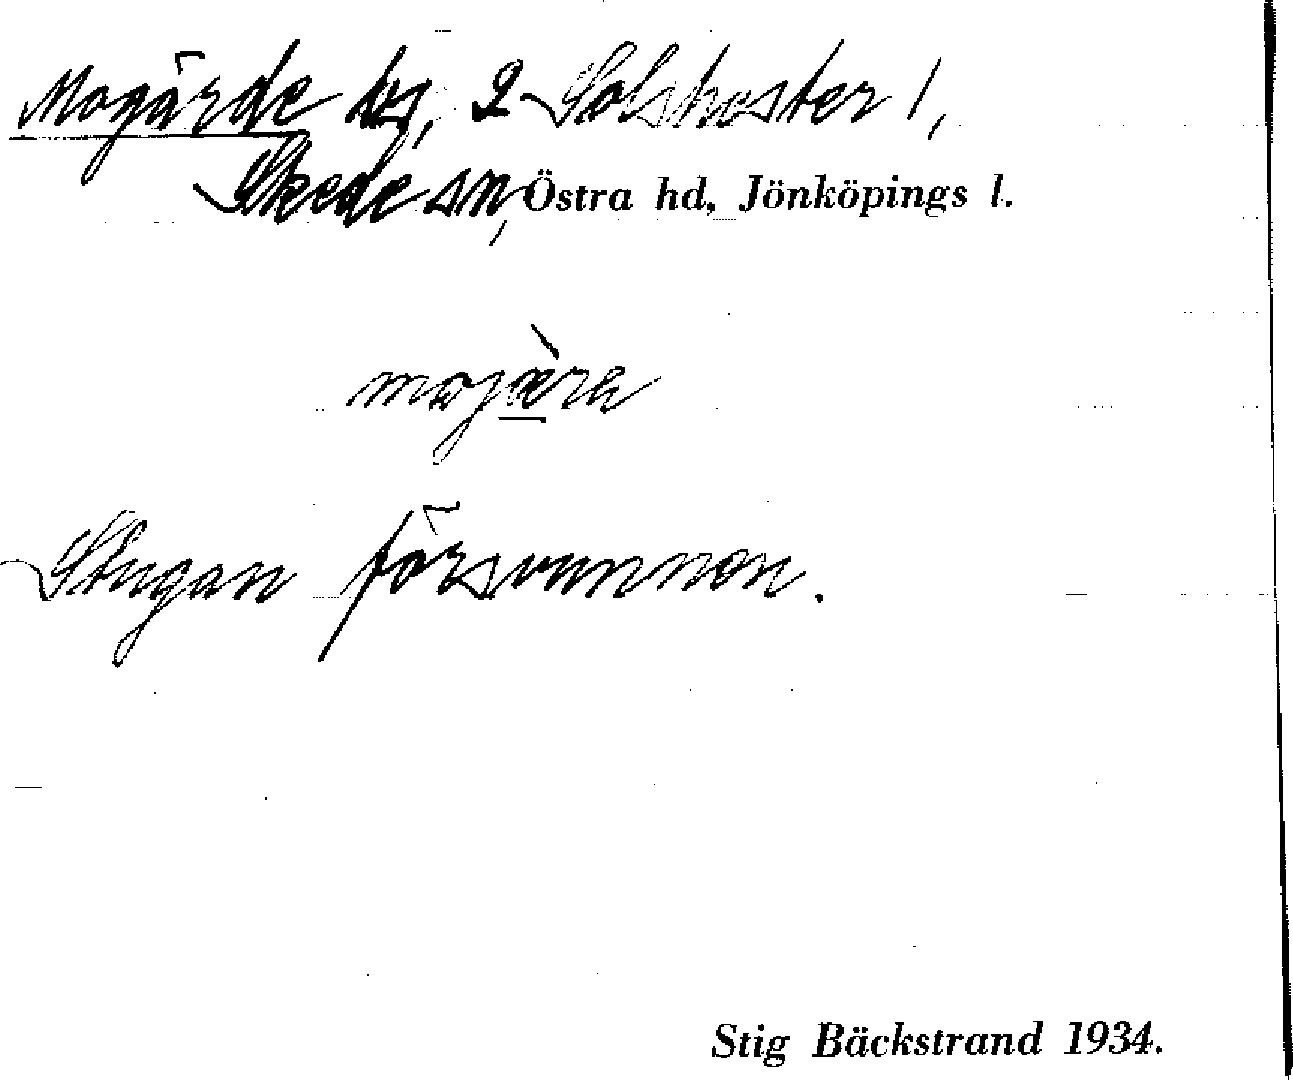 Mogärde bs, 2 Solshester 1,
Skede sn, Östra hd, Jönköpings l.
mojæ̀rə
Stugan försvunnen.
Stig Bäckstrand 1934.